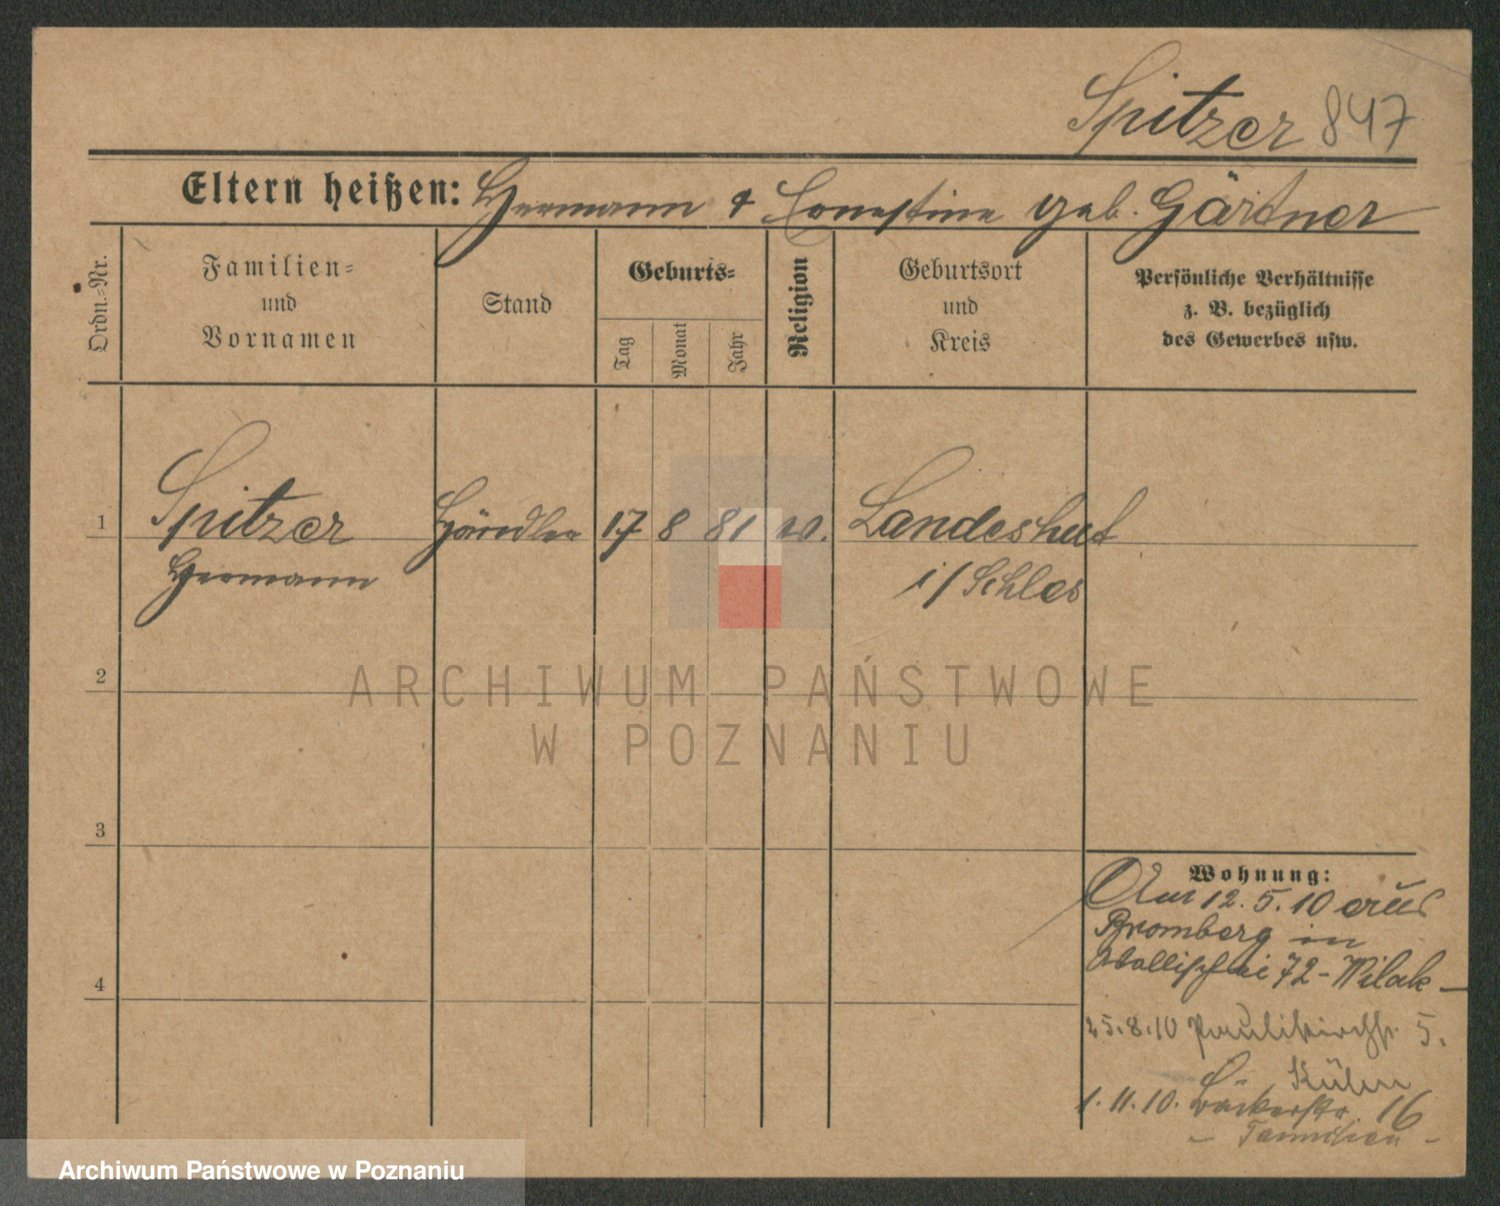 Spitzer 847
Eltern heißen: Hermann & Ernestine geb. Gärtner
Ordn.=Nr.
Familien=
und
Vornamen
Stand
Geburts=
Tag
Monat
Jahr
Religion
Geburtsort
und
Kreis
Persönliche Verhältnisse
z. B. bezüglich
des Gewerbes usw.
1
Spitzer Händler 17 8 81 Landeshut
Hermann i/Schles
2
ARCHIWUM PAŃSTWOWE
W POZNANIU
3
Wohnung:
12.5.10 aus
Bromberg in
72 -
4
25.8.10 Paulikirchstr. 5.
1.11.10. Bäckerstr. 16
- Familien -
Archiwum Państwowe w Poznaniu